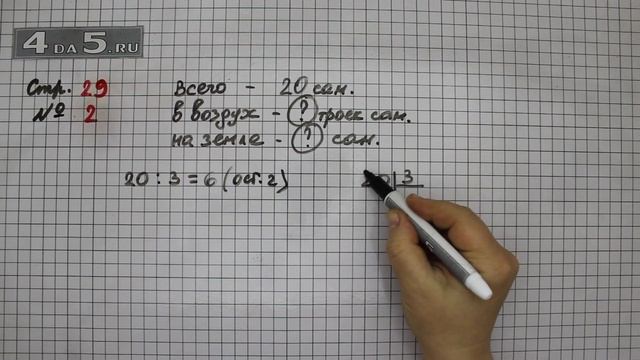 4 DA 5.RU
Стр. 29
№ 2
Всего - 20 сан.
в воздух - ? троек сан.
на земле - ? сан.
20 : 3 = 6 (ост. 2)
20 | 3